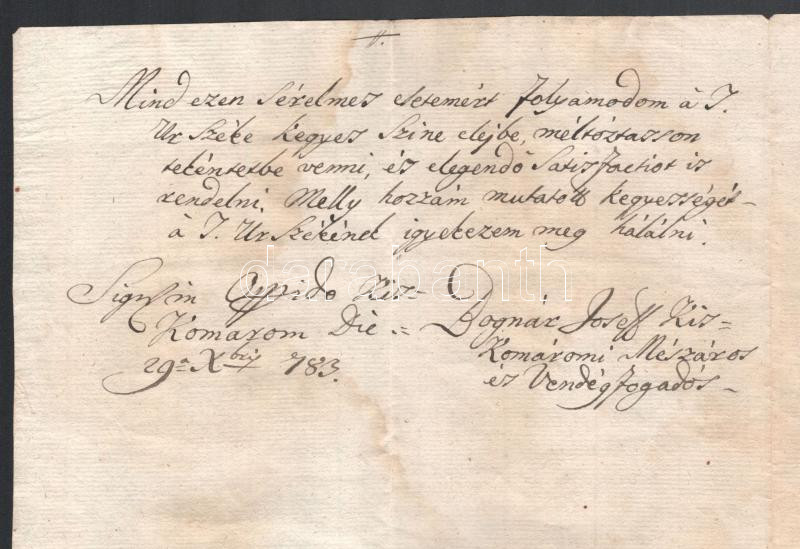 Mind ezen sérelmes esetemért folyamodom à T.
Ur Széke kegyes Szine elejbe, méltóztasson
tekéntetbe venni, és elegendő Satisfactiot is
rendelni. Melly hozzám mutatott kegyességét-
à T. Ur Székének igyekezem meg hálálni.
darabanth
Sign. in Oppido Kis=
Komarom Die
29a Xbris 783.
Bognár Joseff Kis=
Komáromi Mészáros
és Vendégfogadós-